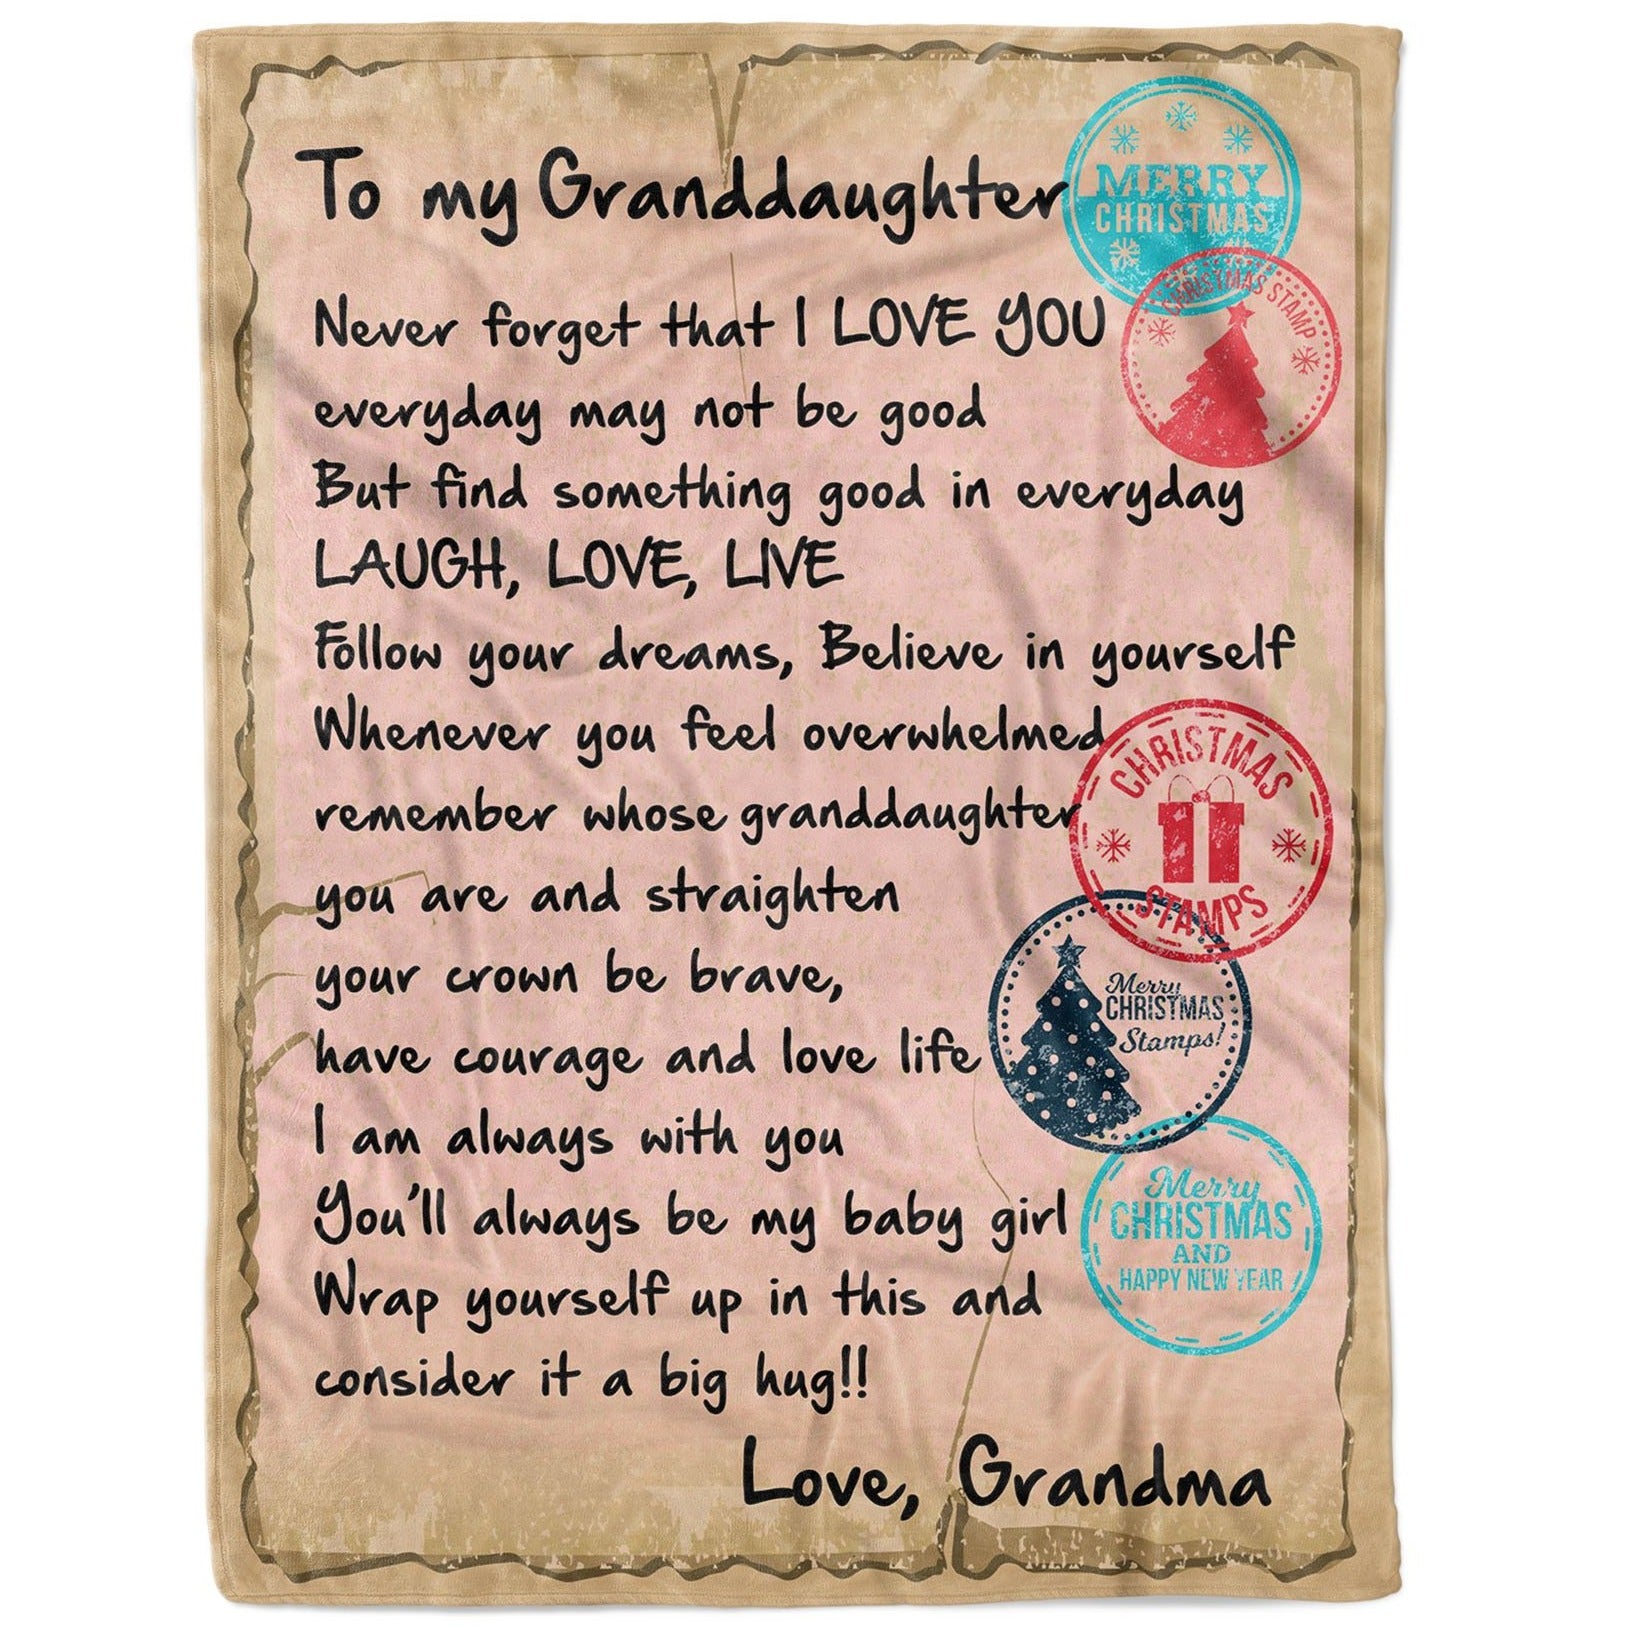 To my Granddaughter
MERRY
CHRISTMAS
CHRISTMAS STAMP
Never forget that I LOVE YOU
everyday may not be good
But find something good in everyday
LAUGH, LOVE, LIVE
Follow your dreams, Believe in yourself
Whenever you feel overwhelmed
remember whose granddaughter
you are and straighten
your crown be brave,
have courage and love life
I am always with you
You'll always be my baby girl
Wrap yourself up in this and
consider it a big hug!!
Love, Grandma
CHRISTMAS
STAMPS
Merry
CHRISTMAS
Stamps!
Merry
CHRISTMAS
AND
HAPPY NEW YEAR